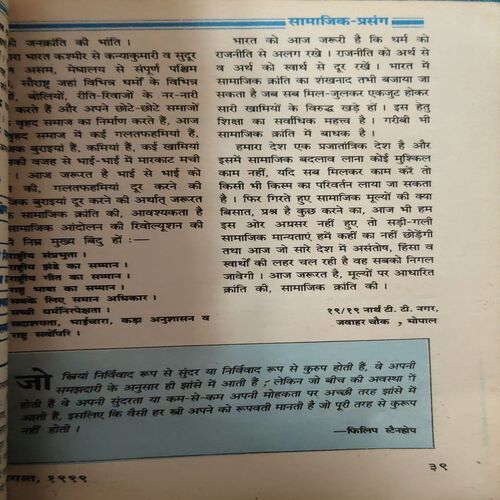 सामाजिक-प्रसंग
की जनक्रांति की भांति ।
भारत कश्मीर से कन्याकुमारी व सुदूर
असम, मेघालय से संपूर्ण पश्चिम
सौराष्ट्र जहां विभिन्न धर्मों के विभिन्न
बोलियों, रीति-रिवाजों के नर-नारी
करते हैं और अपने छोटे-छोटे समाजों
वृहद समाज का निर्माण करते हैं, आज
वृहद समाज में कई गलतफहमियां हैं,
बुराइयां हैं, कमियां हैं, कई खामियां
की वजह से भाई-भाई में मारकाट मची
। आज जरूरत है भाई से भाई को
की, गलतफहमियां दूर करने की
बुराइयां दूर करने की अर्थात् जरूरत
सामाजिक क्रांति की, आवश्यकता है
सामाजिक आंदोलन की रिवोल्यूशन की
निम्न मुख्य बिंदु हों :—
राष्ट्रीय संप्रभुता ।
राष्ट्रीय झंडे का सम्मान ।
राष्ट्रीय गीत का सम्मान ।
राष्ट्र भाषा का सम्मान ।
सबके लिए समान अधिकार ।
सच्ची धर्मनिरपेक्षता ।
सदाशयता, भाईचारा, कड़ा अनुशासन व
राष्ट्र सर्वोपरि ।
भारत को आज जरूरी है कि धर्म को
राजनीति से अलग रखे । राजनीति को अर्थ से
व अर्थ को स्वार्थ से दूर रखें । भारत में
सामाजिक क्रांति का शंखनाद तभी बजाया जा
सकता है जब सब मिल-जुलकर एकजुट होकर
सारी खामियों के विरुद्ध खड़े हों । इस हेतु
शिक्षा का सर्वाधिक महत्त्व है । गरीबी भी
सामाजिक क्रांति में बाधक है ।
हमारा देश एक प्रजातांत्रिक देश है और
इसमें सामाजिक बदलाव लाना कोई मुश्किल
काम नहीं, यदि सब मिलकर काम करें तो
किसी भी किस्म का परिवर्तन लाया जा सकता
है । फिर गिरते हुए सामाजिक मूल्यों की क्या
बिसात, प्रश्न है कुछ करने का, आज भी हम
इस ओर अग्रसर नहीं हुए तो सड़ी-गली
सामाजिक मान्यताएं हमें कहीं का नहीं छोड़ेंगी
तथा आज जो सारे देश में असंतोष, हिंसा व
स्वार्थों की लहर चल रही है वह सबको निगल
जावेगी । आज जरूरत है, मूल्यों पर आधारित
क्रांति की, सामाजिक क्रांति की ।
१९/१९ नार्थ टी. टी. नगर,
जवाहर चौक , भोपाल
जो स्त्रियां निर्विवाद रूप से सुंदर या निर्विवाद रूप से कुरुप होती हैं, वे अपनी
समझदारी के अनुसार ही झांसे में आती हैं ; लेकिन जो बीच की अवस्था में
होती हैं वे अपनी सुंदरता या कम-से-कम अपनी मोहकता पर अच्छी तरह झांसे में
आती हैं, इसलिए कि वैसी हर स्त्री अपने को रूपवती मानती है जो पूरी तरह से कुरूप
नहीं होती ।
—फिलिप स्टैनहोप
अगस्त, १९९९
३९